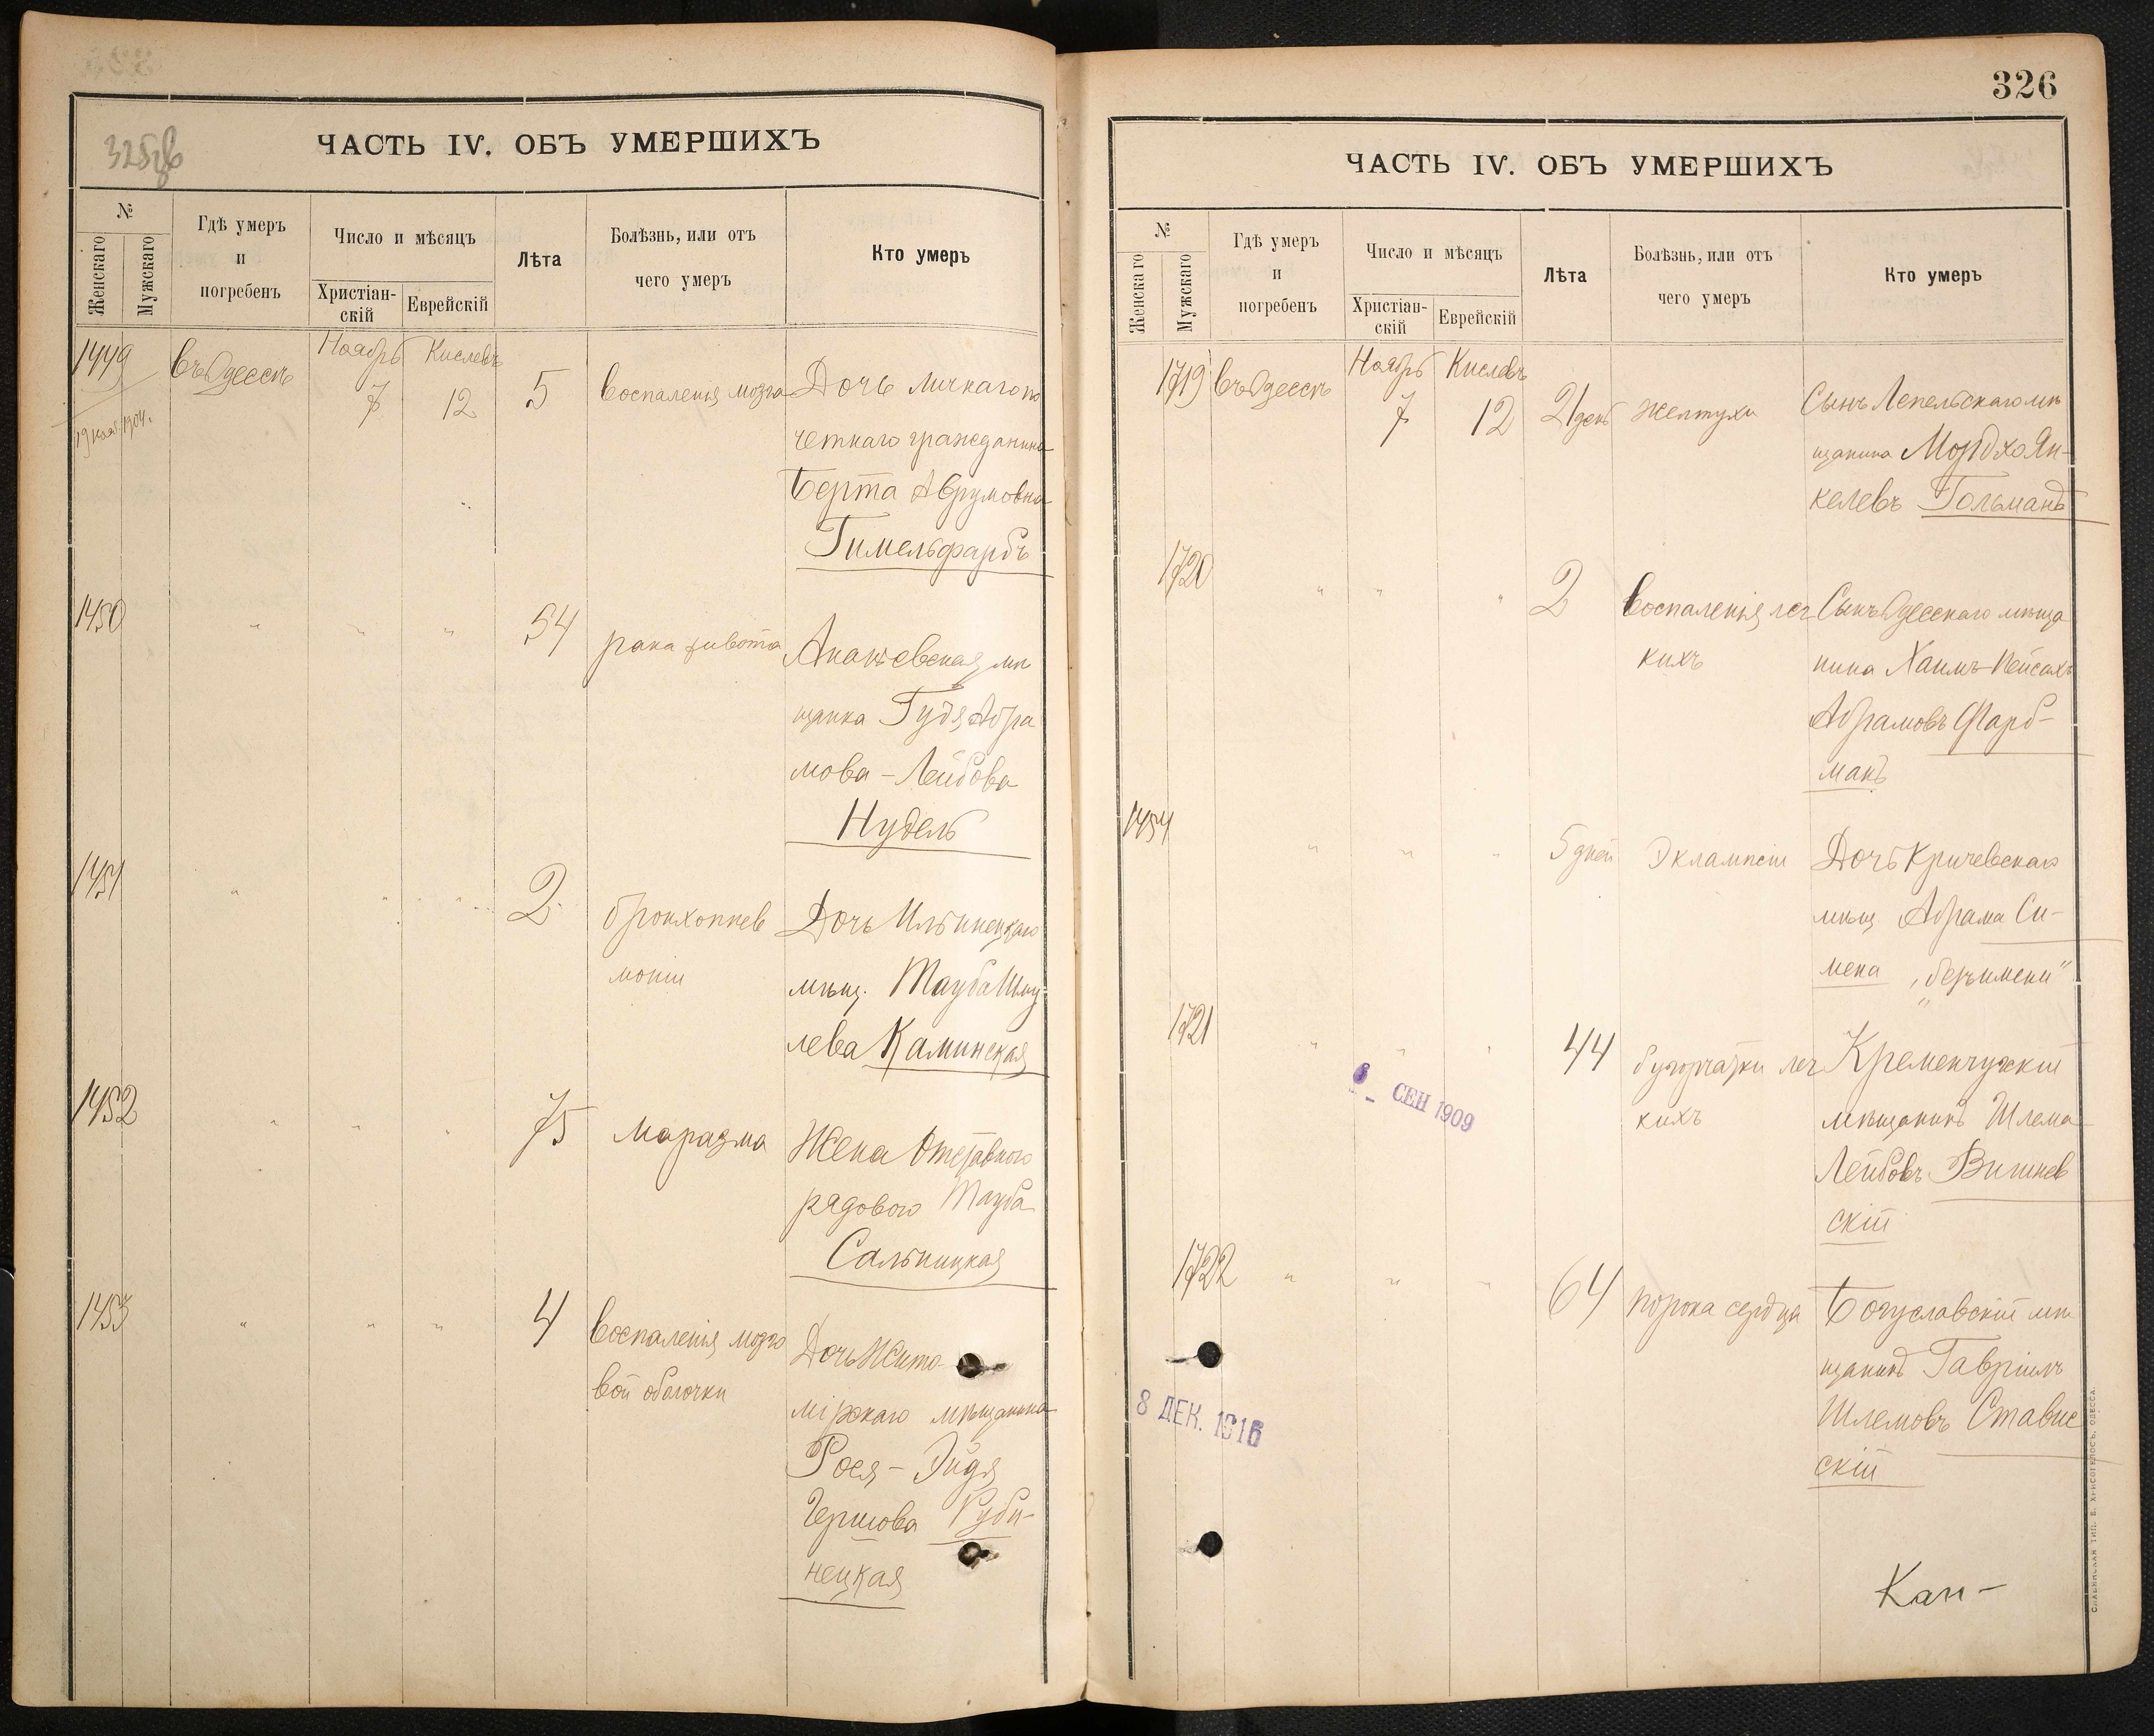 325об
ЧАСТЬ IV. ОБЪ УМЕРШИХЪ
№
Женскаго
Мужскаго
Гдѣ умеръ
и
погребенъ
Число и мѣсяцъ
Христіан-
скій
Еврейскій
Лѣта
Болѣзнь, или отъ
чего умеръ
Кто умеръ
1449 въ Одессѣ Ноябрь 7 Кислевъ 12 5 воспаленія мозга Дочь личнаго по
19 1904.
четнаго гражданина
Берта Аврумовна
Гимельфарбъ
1450 " " " 54 рака живота Ананьевская мѣ
щанка Гудя Абра
мова-Лейбова
Нудель
1451 " " " 2 бронхопнев Дочь Ильинецкаго
моніи мѣщ. Тауба Шму
лева Каминская
1452 " " " 75 Маразма Жена Отставного
рядового Тауба
Сальницкая
1453 " " " 4 воспаленія мозго Дочь Жито-
вой оболочки мірскаго мѣщанина
Рося-Эйдя
Гершова Руби-
нецкая
326
ЧАСТЬ IV. ОБЪ УМЕРШИХЪ
№
Женскаго
Мужскаго
Гдѣ умеръ
и
погребенъ
Число и мѣсяцъ
Христіан-
скій
Еврейскій
Лѣта
Болѣзнь, или отъ
чего умеръ
Кто умеръ
1719 въ Одессѣ Ноябрь 7 Кислевъ 12 21 день Желтухи Сынъ Лепельскаго мѣ
щанина Мордхо Ян-
келевъ Гольманъ
1720 " " " 2 воспаленія лег Сынъ Одесскаго мѣща
кихъ нина Хаимъ-Пейсахъ
Абрамовъ Фарб-
манъ
1454 " " " 5 дней Эклампсіи Дочь Кричевскаго
мѣщ. Абрама Си-
мена „безъимени“
1721 " " " 44 бугорчатки лег Кременчугскій
кихъ мѣщанинъ Шлема
СЕН 1909
Лейбовъ Вишнев
скій
1722 " " " 64 порока сердца Богуславскій мѣ
щанинъ Гавріилъ
8 ДЕК. 1916
Шлемовъ Ставис
скій
Кан-
СЛАВЯНСКАЯ ТИП. Е. ХРИСОГЕЛОСЪ, ОДЕССА.